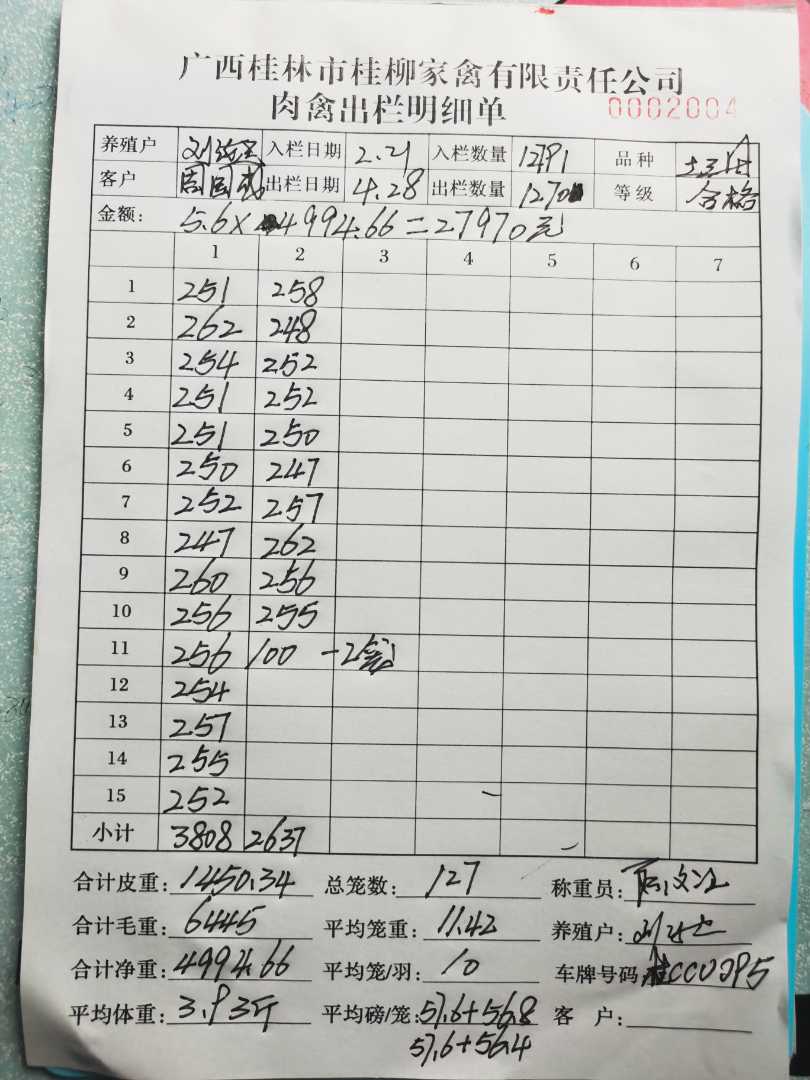 广西桂林市桂柳家禽有限责任公司
肉禽出栏明细单 0002004
养殖户 入栏日期 2.21 入栏数量 品种
客户 出栏日期 4.28 出栏数量 1270 等级 合格
金额: 5.6× 4994.66=27970元
1 2 3 4 5 6 7
1 251 258
2 262 248
3 254 252
4 251 252
5 251 250
6 250 247
7 252 257
8 247 262
9 260 256
10 256 255
11 256 100 -2
12 254
13 257
14 255
15 252
小计 3808 2637
合计皮重: 1450.34 总笼数: 127 称重员:
合计毛重: 6445 平均笼重: 11.42 养殖户:
合计净重: 4994.66 平均笼/羽: 10 车牌号码:
平均体重: 3.93斤 平均磅/笼: 57.6+56.8 客 户:
57.6+56.4